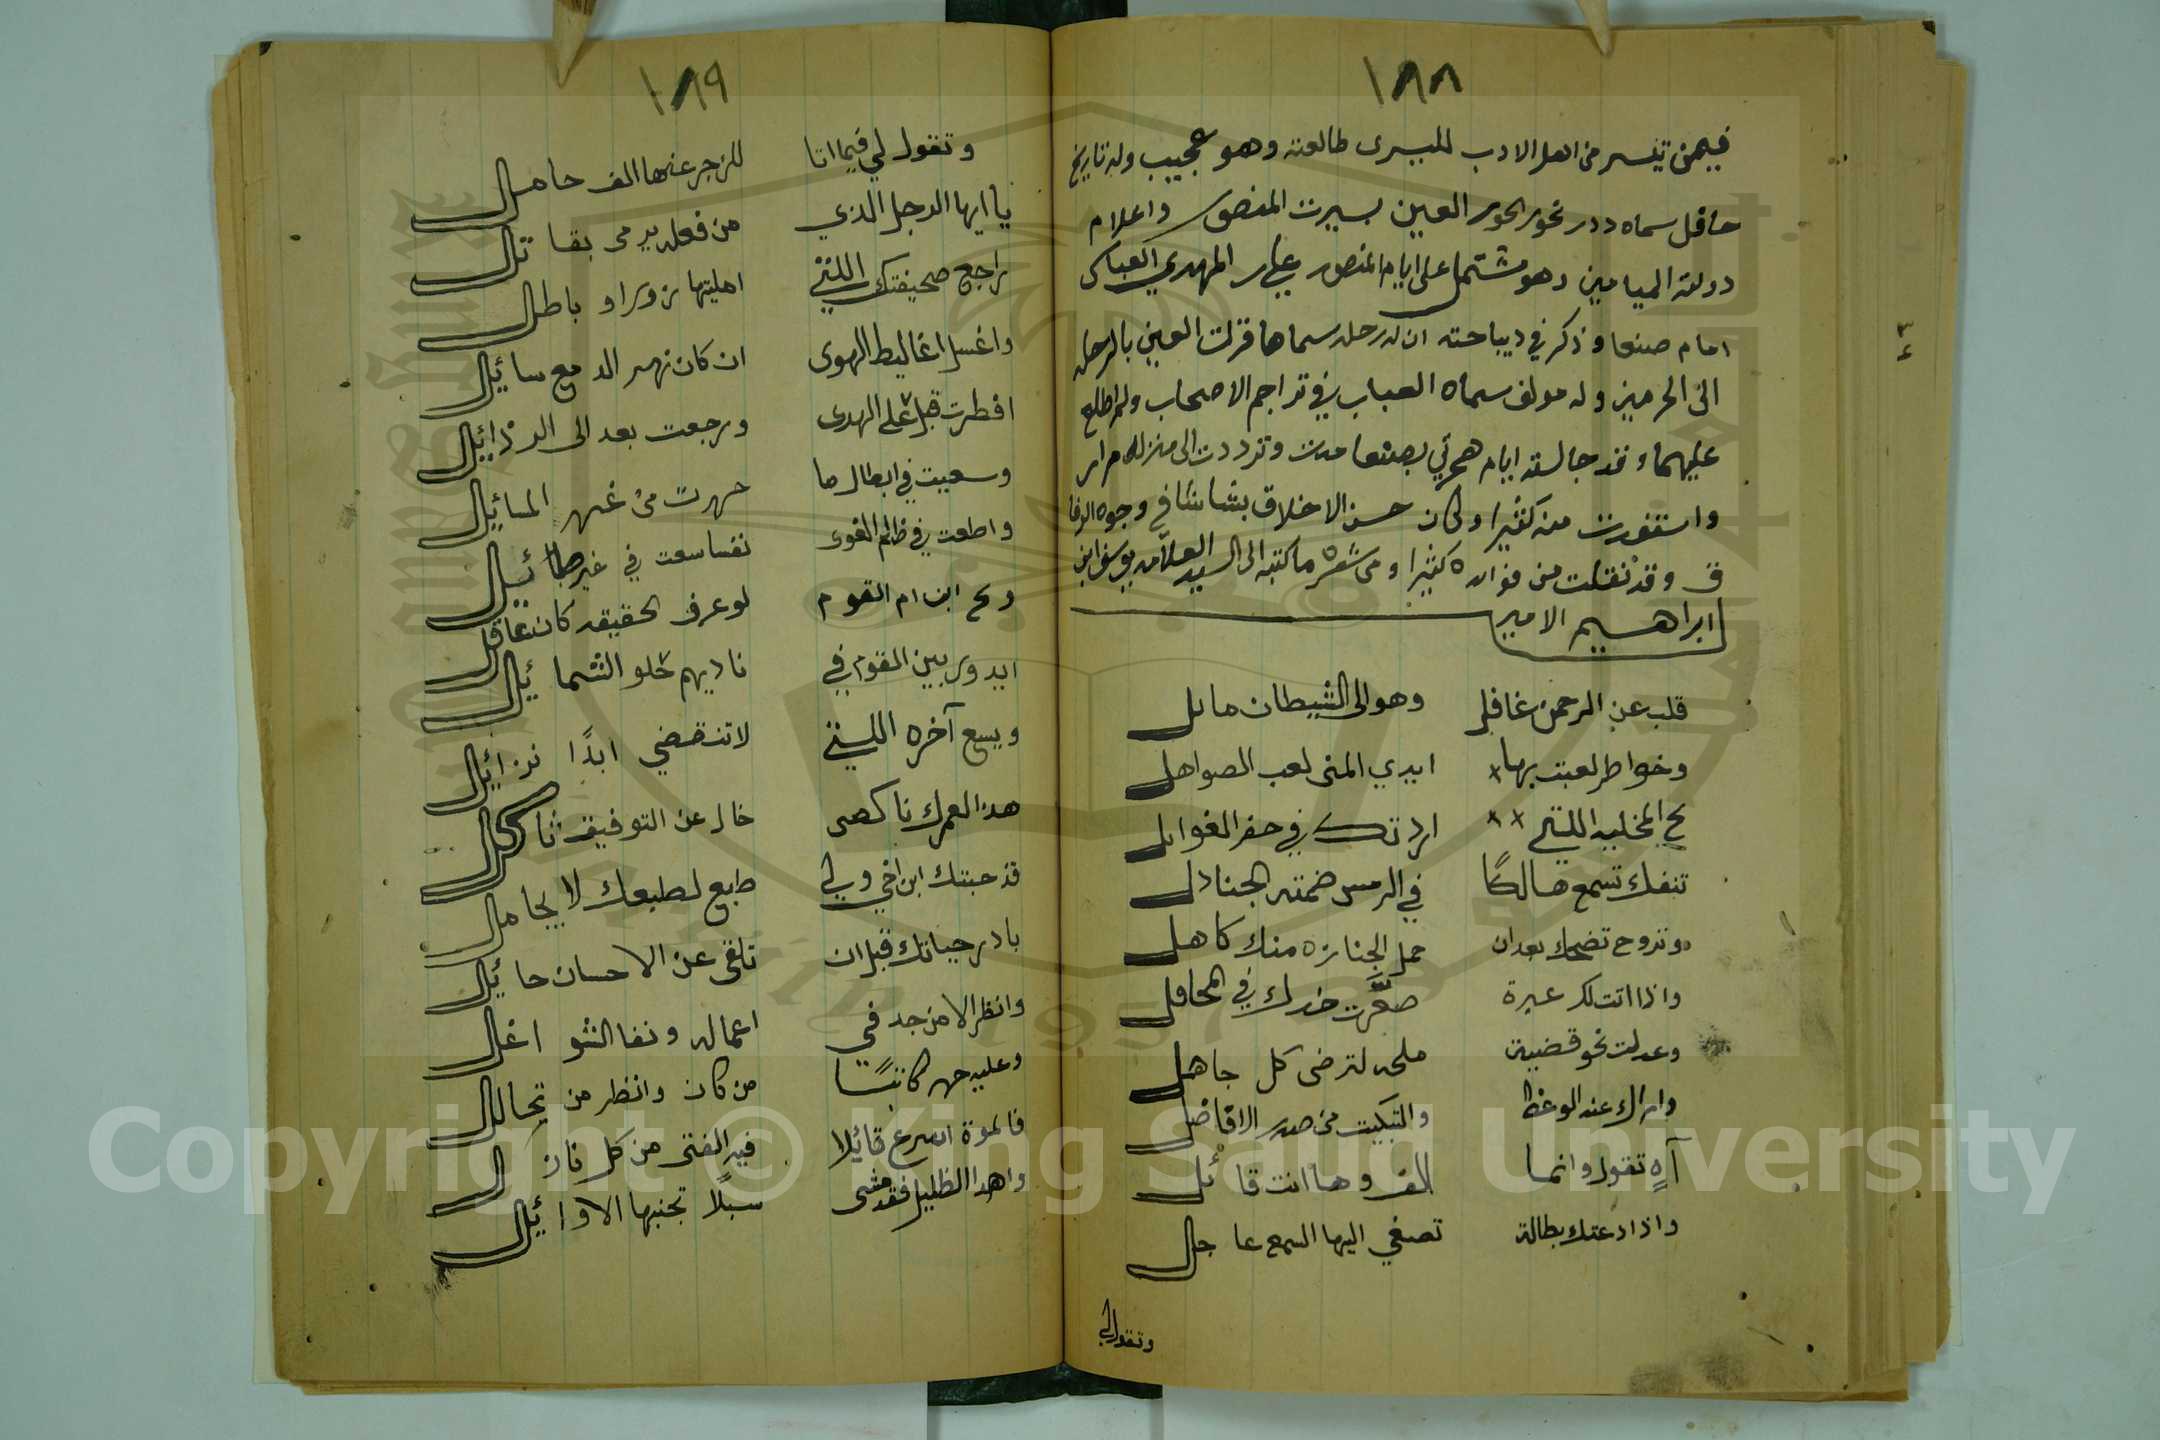 ١٨٨
فيمن تيسر من اهل الادب لليسرى طالعته وهو عجيب وله تاريخ
حافل سماه درر نحور الحور العين بسيرت المنصور واعلام
دولته الميامين وهو مشتمل على ايام المنصور علي المهدي العباس
امام صنعا وذكر في ديباجته ان له رحله سماها قرت العين بالرحله
الى الحرمين وله مولف سماه العباب في تراجم الاصحاب ولم اطلع
عليهما وقد جالسته ايام هجرتي بصنعا وترددت الى منزله مرار
واستفدت منه كثيرا وكان حسن الاخلاق بشاشا في وجوه الرفا
ق وقد نقلت من فوائده كثيرا ومن شعره ما كتبه الى السيد العلامه يوسف ابن
ابراهيم الامير
قلب عن الرحمن غافل وهو الى الشيطان مائل
وخواطر لعبت بها ايدي المنى لعب الصواهل
اردتك في حفر الغوايل
تنفك تسمع هالكًا في الرمس ضمته الجنادل
وتروح تضحك بعدان حمل الجنازه منك كاهل
واذا اتت لك عبرة صعّرت خدك في المحافل
وعدلت نحو قضية ملحه لترضى كل جاهل
واراك عند الوعظ والتبكيت من صدر الافاضل
آهٍ تقول وانما الف وها انت قائل
واذا دعتك بطالة تصغي اليها السمع عاجل
وتقول لي
١٨٩
وتقول لي فيما اتا للزجر عنها الف حامل
يا ايها الرجل الذي من فعله يرمى بقاتل
راجع صحيفتك اللتي امليتها زورا و باطل
واغسل اغاليط الهوى ان كان نهر الدمع سائل
افطرت قبل على الهدى ورجعت بعد الى الرذايل
وسعيت في ابطال ما حررت من غرر المسائيل
واطعت في ظلم الغوى نفسا سعت في غير طائيل
ويح ابن ام القوم لو عرف الحقيقه كان عاقل
ايدور بين القوم في ناديهم حلو الشمائيل
ويبيع آخره اللتي لا تنقضي ابدًا بزائيل
هذا لعمرك ناكص خال عن التوفيق ثاكل
قد جبتك ابن اخي ولي طابع لطبعك لا يجامل
بادر حياتك قبل ان تلقى عن الاحسان حائيل
وانظر الا من جد في اعماله ونفا الشواغل
من كان وانظر من تجالل
قائلا فيه الفتى من كل نازل
سبلًا تجنبها الاوائيل
Copyright © King Saud University